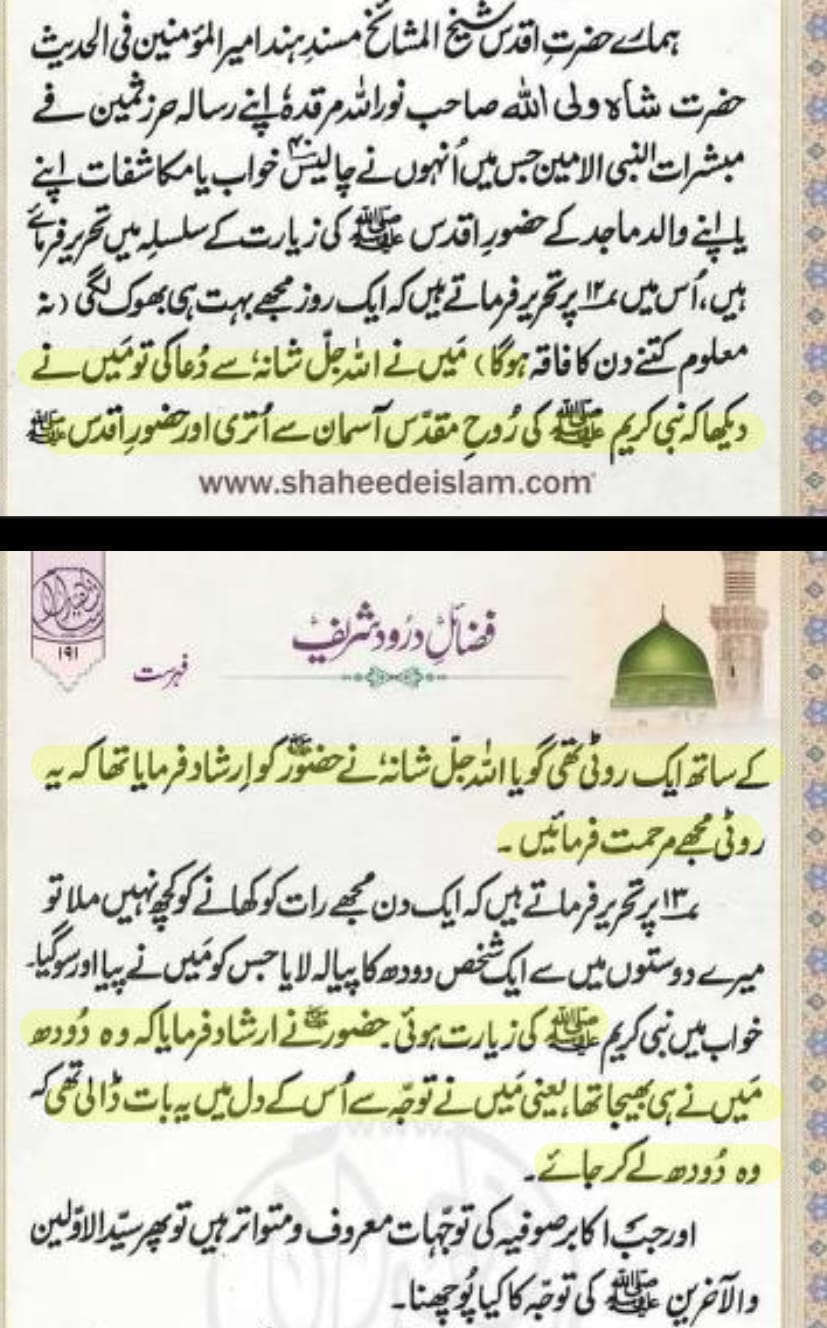 ہمارے حضرتِ اقدس شیخ المشائخ مسندِ ہند امیر المؤمنین فی الحدیث
حضرت شاہ ولی اللہ صاحب نور اللہ مرقدہٗ اپنے رسالہ حرزِ ثمین فے
مبشرات النبی الامین جس میں اُنہوں نے چالیس۴۰ خواب یا مکاشفات اپنے
یا اپنے والد ماجد کے حضورِ اقدس ﷺ کی زیارت کے سلسلہ میں تحریر فرمائے
ہیں، اُس میں ۱۲ پر تحریر فرماتے ہیں کہ ایک روز مجھے بہت ہی بھوک لگی (نہ
معلوم کتنے دن کا فاقہ ہوگا) مَیں نے اللہ جلّ شانہٗ سے دُعا کی تو مَیں نے
دیکھا کہ نبی کریم ﷺ کی رُوحِ مقدّس آسمان سے اُتری اور حضورِ اقدس ﷺ
www.shaheedeislam.com
۱۹۱
فضائلِ درُود شریف
فہرست
کے ساتھ ایک روٹی تھی گویا اللہ جلّ شانہٗ نے حضورؐ کو اِرشاد فرمایا تھا کہ یہ
روٹی مجھے مرحمت فرمائیں ۔
۱۳ پر تحریر فرماتے ہیں کہ ایک دن مجھے رات کو کھانے کو کچھ نہیں ملا تو
میرے دوستوں میں سے ایک شخص دودھ کا پیالہ لایا جس کو مَیں نے پیا اور سوگیا۔
خواب میں نبی کریم ﷺ کی زیارت ہوئی ۔ حضورؐ نے ارشاد فرمایا کہ وہ دُودھ
مَیں نے ہی بھیجا تھا، یعنی مَیں نے توجّہ سے اُس کے دل میں یہ بات ڈالی تھی کہ
وہ دُودھ لے کر جائے ۔
اور جب اکابر صوفیہ کی توجّہات معروف و متواتر ہیں تو پھر سیّد الاوّلین
والآخرین ﷺ کی توجّہ کا کیا پُوچھنا۔